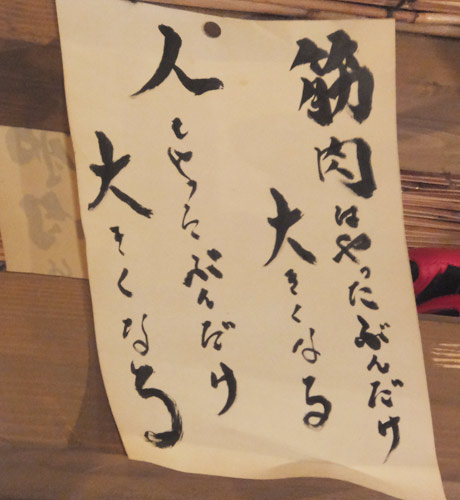 筋肉はやったぶんだけ
大きくなる
人もやったぶんだけ
大きくなる